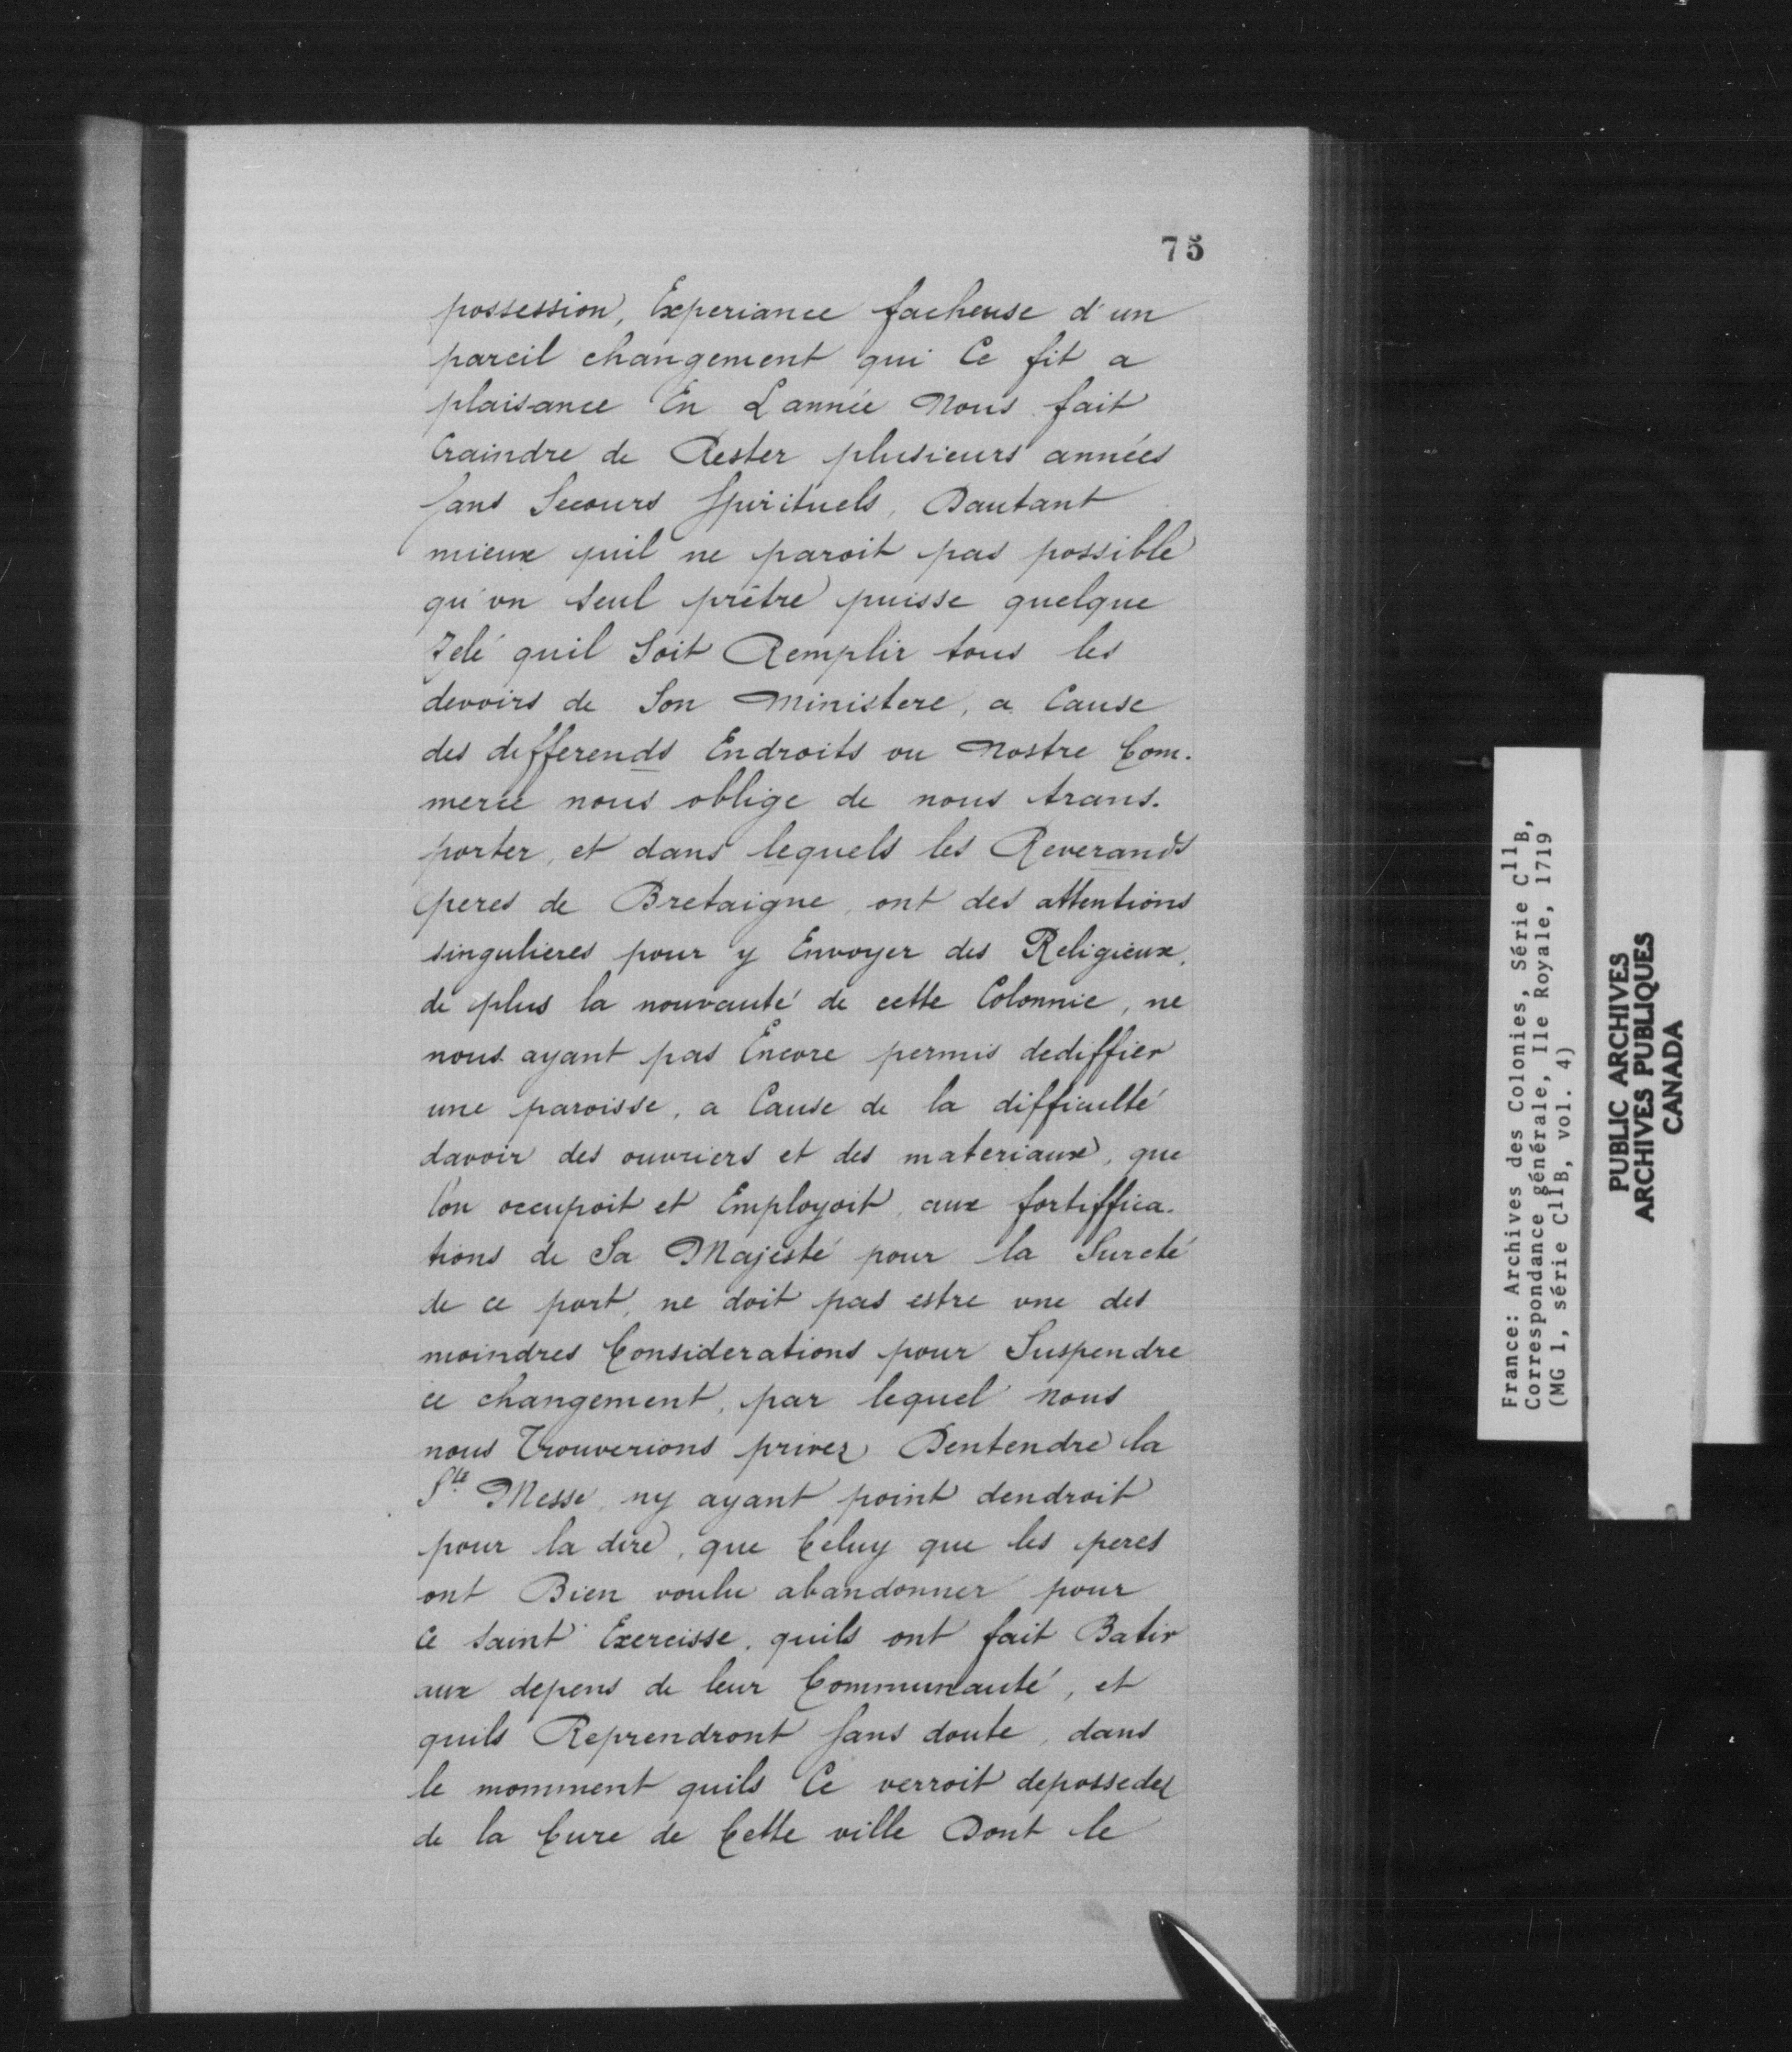 75
possession, Experiance facheuse d'un
pareil changement qui Ce fit a
plaisance En L'année Nous fait
Craindre de Rester plusieurs années
sans Secours Spirituels, Dautant
mieux quil ne paroit pas possible
qu'vn seul prêtre puisse quelque
Zelé quil Soit Remplir tous les
devoirs de Son Ministere, a Cause
des differends Endroits ou Nostre Com-
merce nous oblige de nous trans-
porter, et dans lequels les Reverands
peres de Bretaigne, ont des attentions
singulieres pour y Envoyer des Religieux,
de plus la nouvauté de cette Colonnie, ne
nous ayant pas Encore permis dediffier
une paroisse, a Cause de la difficulté
davoir des ouvriers et des materiaux, que
l'on occupoit et Employoit, aux fortiffica-
tions de Sa Majesté pour la Sureté
de ce port, ne doit pas estre vne des
moindres Considerations pour Suspendre
ce changement, par lequel nous
nous Trouverions privez Dentendre la
Ste Messe, ny ayant point dendroit
pour la dire, que Celuy que les peres
ont Bien voulu abandonner pour
Ce saint Exercisse, quils ont fait Batir
aux depens de leur Communauté, et
quils Reprendront sans doute, dans
le momment quils Ce verroit depossedez
de la Cure de Cette ville Dont le
France: Archives des Colonies, Série C11B,
Correspondance générale, Ile Royale, 1719
(MG 1, série C11B, vol. 4)
PUBLIC ARCHIVES
ARCHIVES PUBLIQUES
CANADA